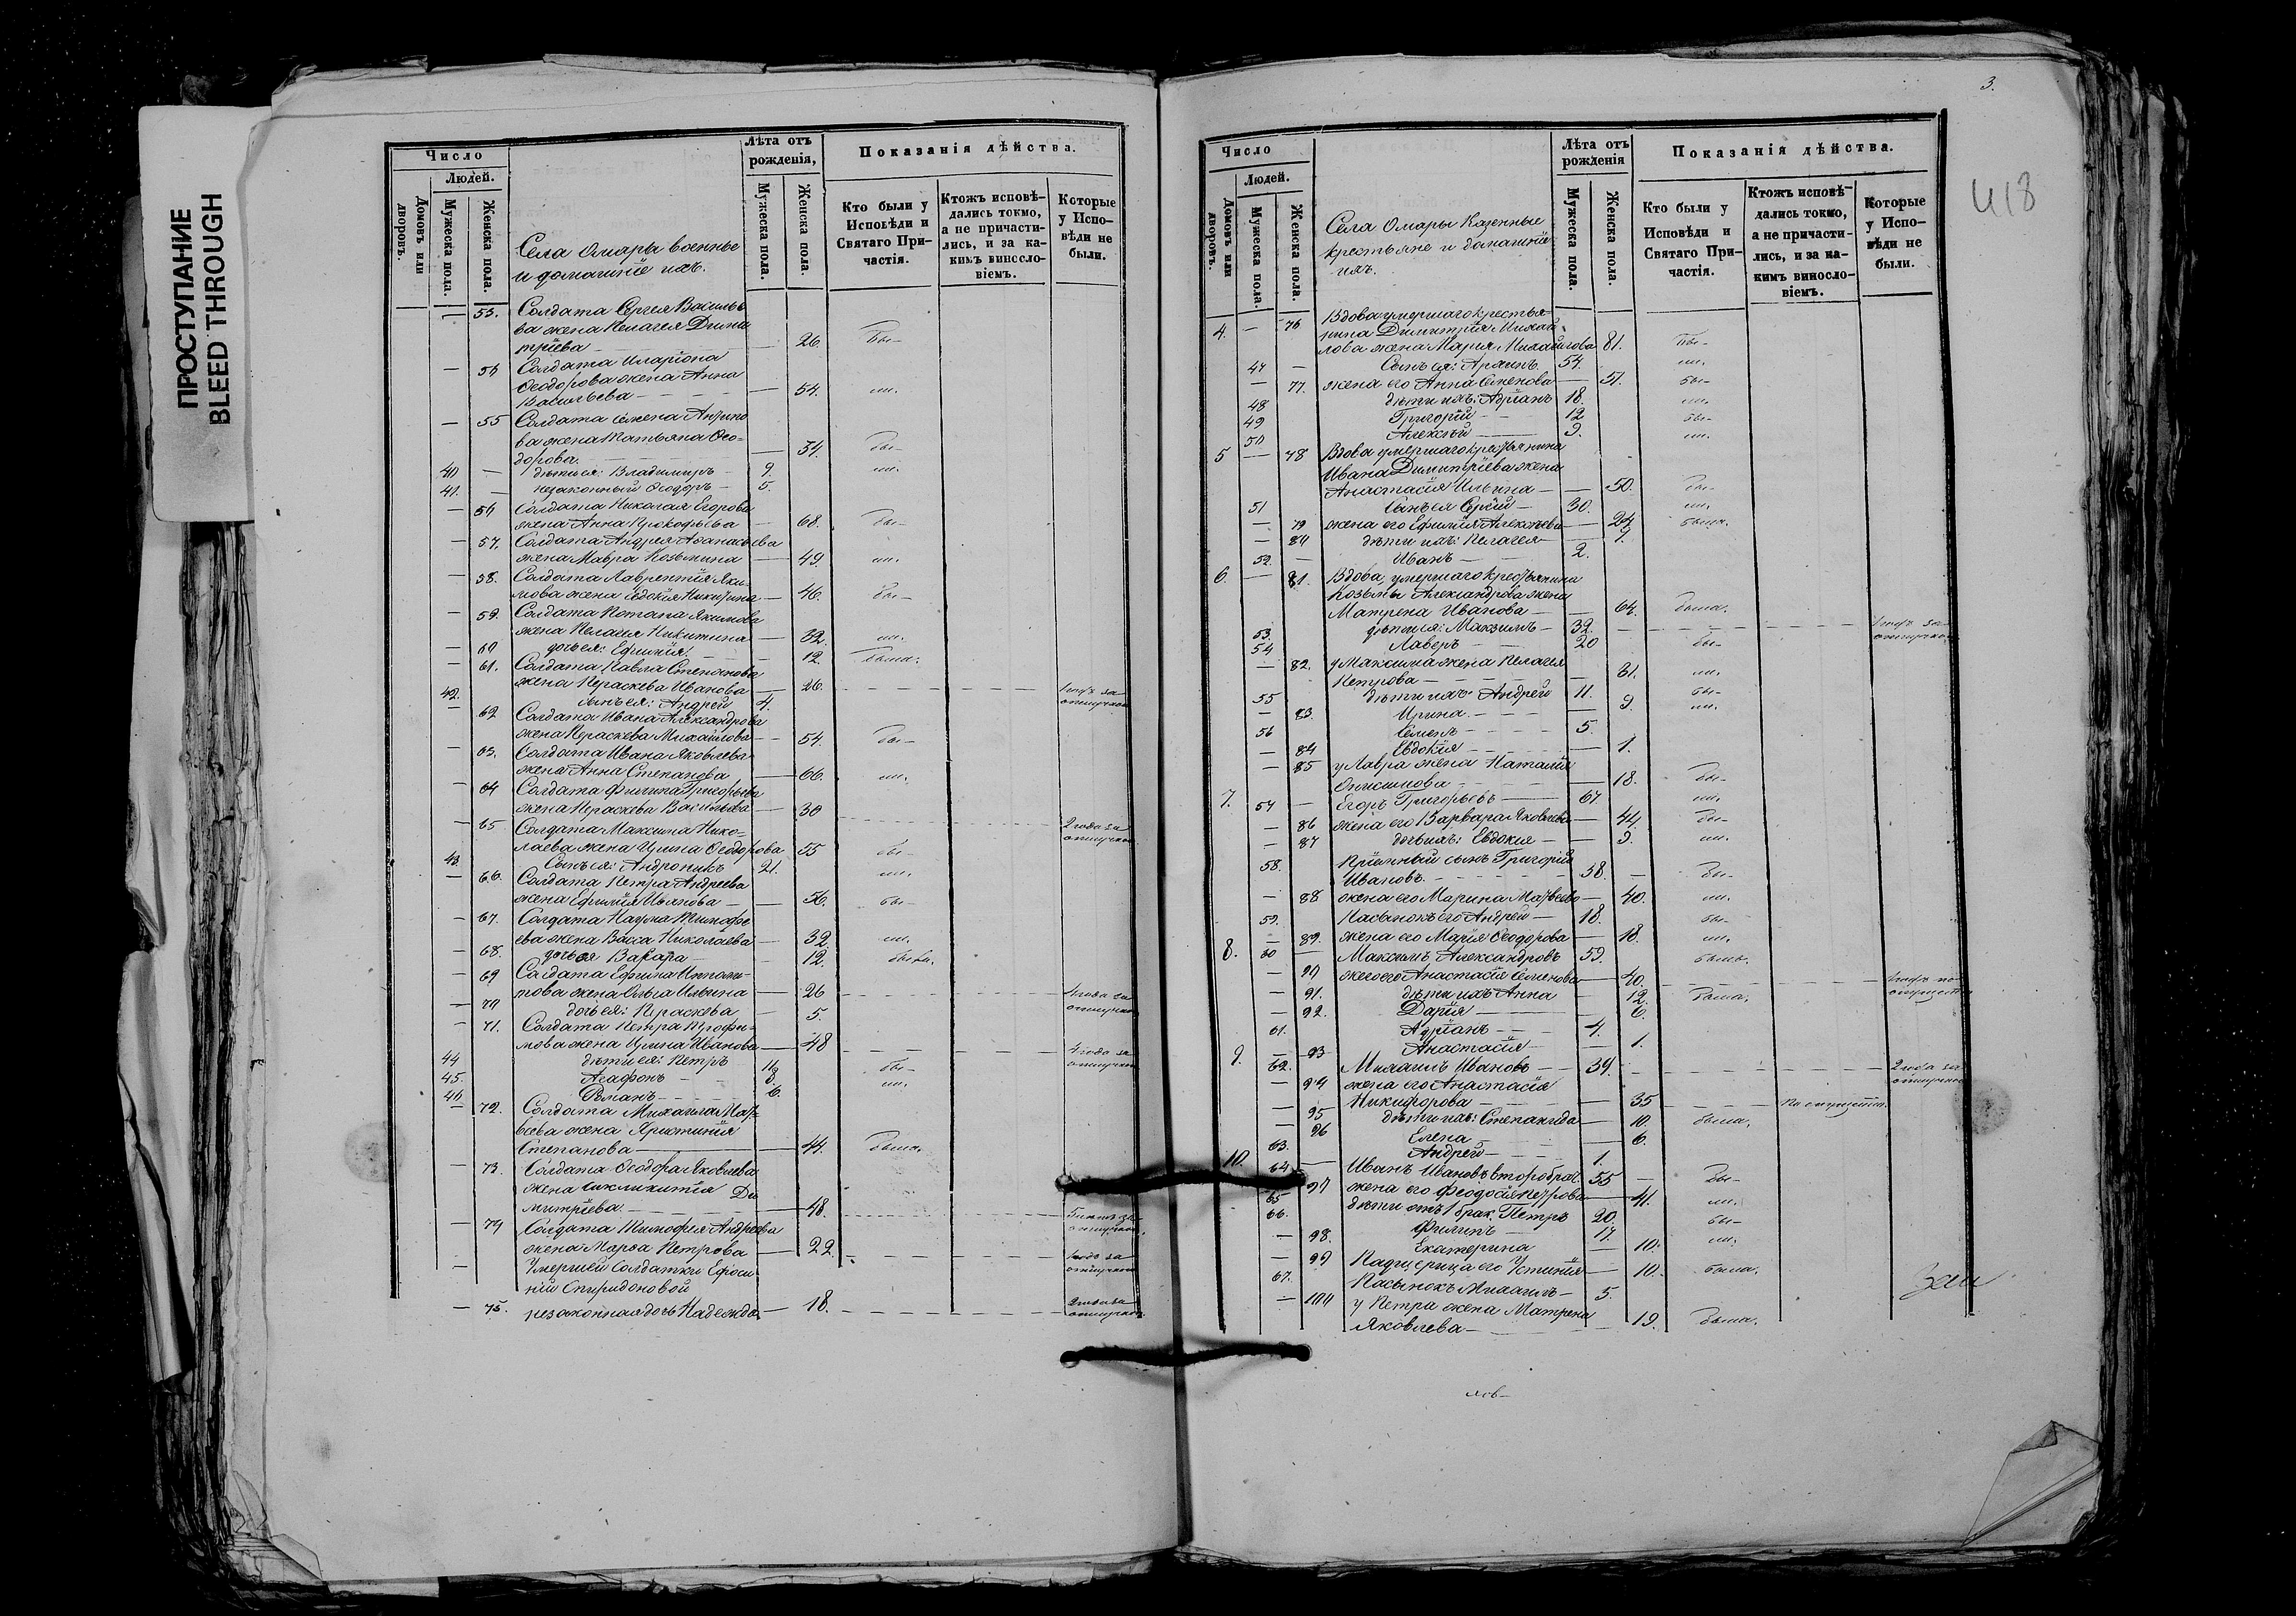 ПРОСТУПАНИЕ
BLEED THROUGH
Число
Людей.
Домовъ или дворовъ.
Мужеска пола.
Женска пола.
Села Омары военные
и домашніе ихъ.
Лѣта отъ рожденія,
Мужеска пола.
Женска пола.
Показанія дѣйства.
Кто были у Исповѣди и Святаго Причастія.
Ктожъ исповѣ-
дались токмо,
а не причасти-
лись, и за ка-
кимъ виносло-
віемъ.
Которые
у Испо-
вѣди не
были.
— 53. Солдата Сергея Василье
ва жена Пелагея Дими
тріева — 26. бы-
— 54 Солдата Иларіона
Ѳеодорова жена Анна
Васильева — 54. ли.
— 55 Солдата Семена
ва жена Татьяна Ѳео-
дорова. — 34. бы-
40 — дѣти ея: Владимиръ 9. ли.
41. — незаконный Ѳеодоръ — 5.
— 56 Солдата Николая Егорова
жена Анна Прокофьева — 68. бы-
— 57. Солдата Андрея Аѳанасьева
жена Мавра Козьмина — 49. ли.
— 58. Солдата Лаврентія Яки-
мова жена Евдокія Никитина — 46. бы-
— 59. Солдата Потапа Якимова
жена Пелагея Никитина — 32. ли.
— 60 дочь ея: Ефимія. — 12. была.
— 61. Солдата Павла Степанова
жена Параскева Иванова — 26. 1 годъ за
42. — сынъ ея: Андрей 4. отлучкою
— 62 Солдата Ивана Александрова
жена Параскева Михайлова — 54. бы-
— 63. Солдата Ивана Яковлева
жена Анна Степанова — 66. ли.
— 64 Солдата Филипа Григорьева
жена Параскева Васильева — 30 2 года за
— 65 Солдата Максима Нико- отлучкою
лаева жена Ирина Ѳеодорова 55 бы-
43. — Сынъ ея: Андроникъ 21. ли.
— 66. Солдата Петра Андреева
жена Ефимія Иванова — 56. бы-
— 67. Солдата Наума Тимофе
ева жена Васса Николаева — 32. ли.
— 68. дочь ея Варвара — 12. была.
— 69 Солдата Ефима Иппали-
това жена Ольга Ильина — 26 4 года за
— 70 дочь ея: Параскева — 5. отлучкою
— 71. Солдата Петра Трофи-
мова жена Ирина Иванова — 48 4 года за
44 дѣти ея: Петръ 11 бы- отлучкою
45. Агафонъ — 8 ли.
46 Романъ — 6.
— 72. Солдата Михаила Мат
веева жена Христинія
Степанова — 44. была.
— 73. Солдата Ѳеодора Яковлева
жена Ди
митріева. — 48. 5 лѣтъ за
— 74 Солдата Тимофея Андреева отлучкою.
жена Марѳа Петрова — 22. 1 годъ за
— Умершей Солдатки Ефроси отлучкою
ніи Спиридоновой
— 75. незаконная дочь Надежда — 18. 2 года за
отлучкою
3.
418
Число
Людей.
Домовъ или дворовъ.
Мужеска пола.
Женска пола.
Села Омары Казенные
крестьяне и домашніе
ихъ.
Лѣта отъ рожденія
Мужеска пола.
Женска пола.
Показанія дѣйства.
Кто были у Исповѣди и Святаго Причастія.
Ктожъ исповѣ-
дались токмо,
а не причасти-
лись, и за ка-
кимъ виносло-
віемъ.
Которые
у Испо-
вѣди не
были.
4. — 76 Вдова умершаго крестья-
нина Димитрія Михай
лова жена Марія Михайлова 81. бы-
47 — Сынъ ея: 54. ли.
— 77. жена его Анна Семенова — 51. бы-
48 дѣти ихъ: Адріанъ 18. ли.
49 Григорій — 12 бы-
50 Алексѣй — 9. ли.
5 — 78 Вдова умершаго крестьянина
Ивана Димитріева жена
Анастасія Ильина — 50. бы-
51 Сынъ ея Сергій — 30. ли.
— 79 жена его Ефимія Алексѣева — 24. была.
— 80 дѣти ихъ: Пелагея — 7.
52. — Иванъ — 2.
6. — 81. Вдова умершаго крестьянина
Козьмы Александрова жена
Матрена Иванова — 64. была.
53. дѣти ея: Максимъ — 32. 1 годъ за
54 Лавръ — 20 бы- отлучкою
— 82. у Максима жена Пелагея
Петрова — 31. ли.
55 дѣти ихъ Андрей 11. бы-
— 83. Ирина — 9. ли.
56 Семенъ — 5.
— 84 Евдокія — 1.
— 85 у Лавра жена Наталія
Онисимова — 18. бы-
7. 57 — Егоръ Григорьевъ — 67. ли.
— 86 жена его Варвара Яковлева — 44. бы-
— 87 дочь ихъ: Евдокія — 9. ли.
58. Пріемный сынъ Григорій
Ивановъ. — 58. — бы-
— 88 жена его Марина Матвеева — 40. ли.
59. Пасынокъ его Андрей — 18. бы-
— 89. жена его Марія Ѳеодорова — 18. ли.
8. 60 — Максимъ Александровъ 59. былъ.
— 90 жена его Анастасія Семенова — 40. 1 годъ по
— 91. дѣти ихъ Анна — 12. была. опущен
— 92. Дарія — 6.
61. Адріанъ — 4.
— 93 Анастасія — 1.
9. 62. Михаилъ Ивановъ — 39. 2 года за
— 94 жена его Анастасія отлучкою
Никифорова — 35 По опущенію.
— 95 дѣти ихъ: Степанида — 10. была.
— 96 Елена — 6.
63. Андрей — 1.
10. 64 Иванъ Ивановъ второбрач. 55 — бы-
97 жена его Феодосія Петрова — 41. ли.
65 дѣти отъ 1 брак. Петръ 20. бы-
66. Филипъ — 17. ли.
— 98. Екатерина — 10.
— 99 Падчерица его Устинія — 10. была.
67. Пасынокъ Михаилъ — 5.
— 100 у Петра жена Матрена
Яковлева — 19. была.